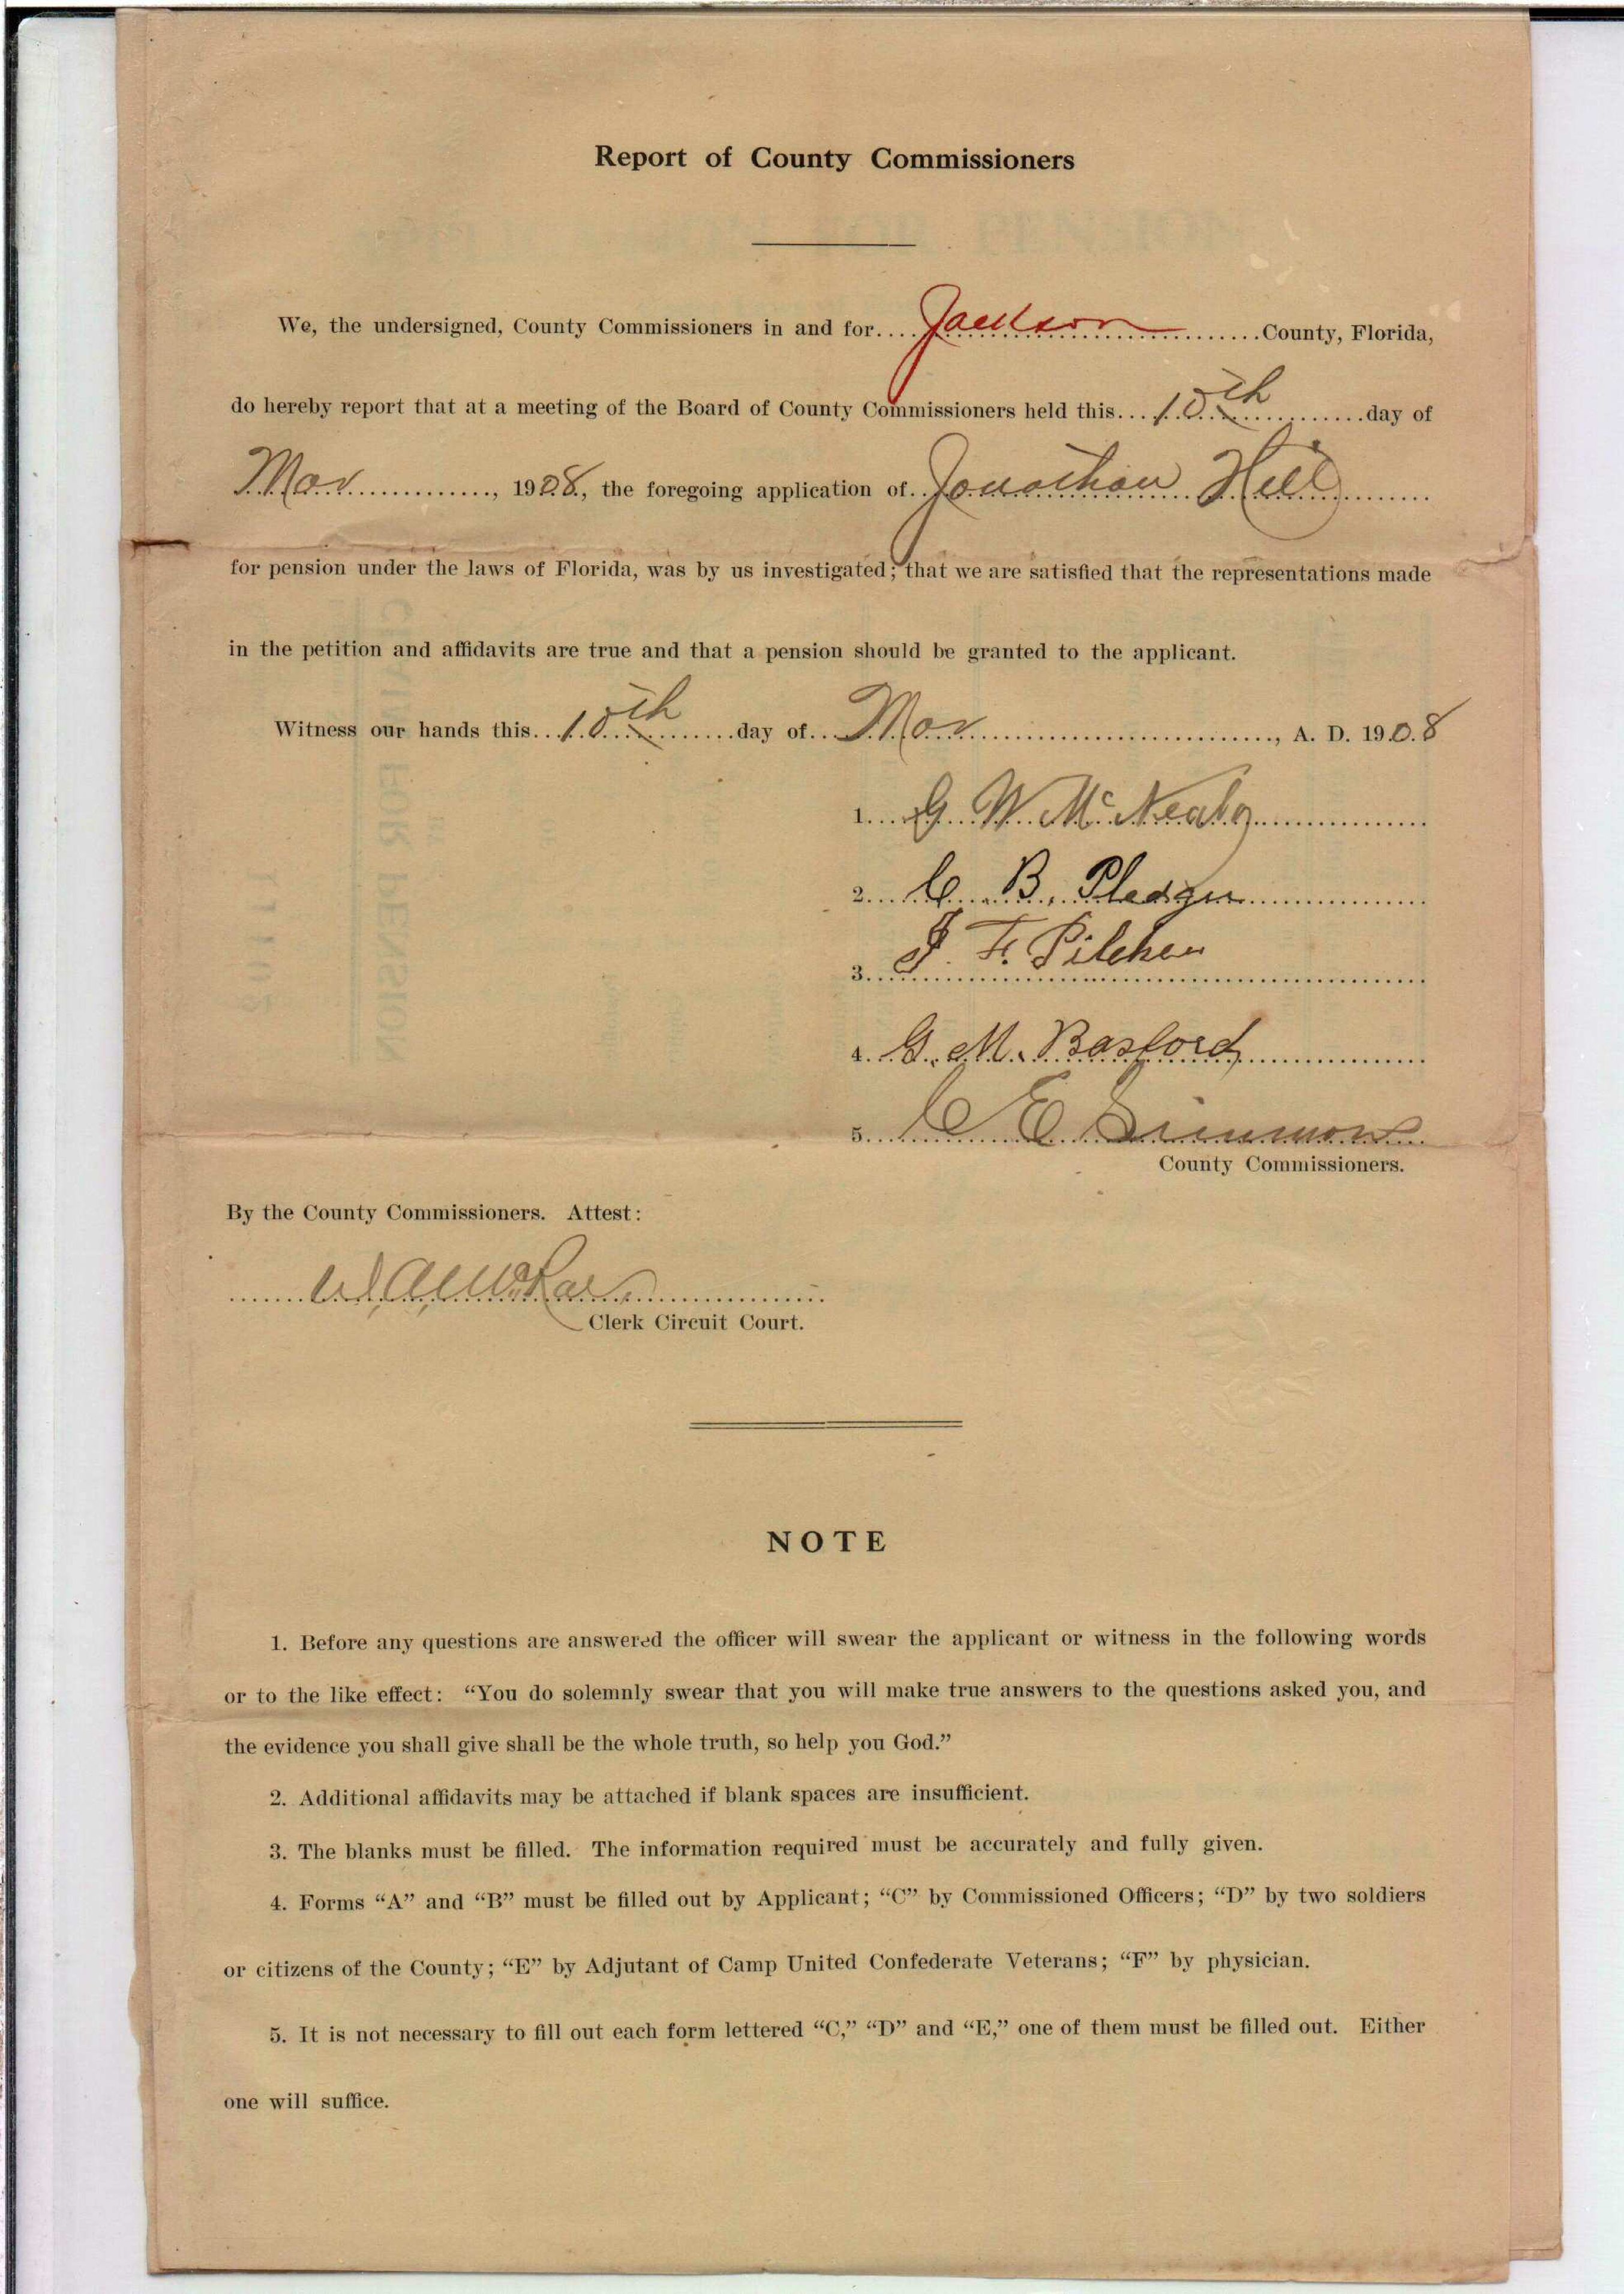 Report of County Commissioners
We, the undersigned, County Commissioners in and for.... Jackson ..........County, Florida,
do hereby report that at a meeting of the Board of County Commissioners held this... 10th ..........day of
Mar .............., 1908., the foregoing application of.. Jonathan Hill ..........
for pension under the laws of Florida, was by us investigated; that we are satisfied that the representations made
in the petition and affidavits are true and that a pension should be granted to the applicant.
Witness our hands this.. 10th ........day of.. Mar .............................., A. D. 1908
1.... G. W. McNealy ..................
2.... C. B. Pledger ..................
3.... J. F. Pilcher
4. G. M. Basford ..................
5.... C E Simmons
County Commissioners.
By the County Commissioners. Attest:
Clerk Circuit Court.
NOTE
1. Before any questions are answered the officer will swear the applicant or witness in the following words
or to the like effect: “You do solemnly swear that you will make true answers to the questions asked you, and
the evidence you shall give shall be the whole truth, so help you God.”
2. Additional affidavits may be attached if blank spaces are insufficient.
3. The blanks must be filled. The information required must be accurately and fully given.
4. Forms “A” and “B” must be filled out by Applicant; “C” by Commissioned Officers; “D” by two soldiers
or citizens of the County; “E” by Adjutant of Camp United Confederate Veterans; “F” by physician.
5. It is not necessary to fill out each form lettered “C,” “D” and “E,” one of them must be filled out. Either
one will suffice.